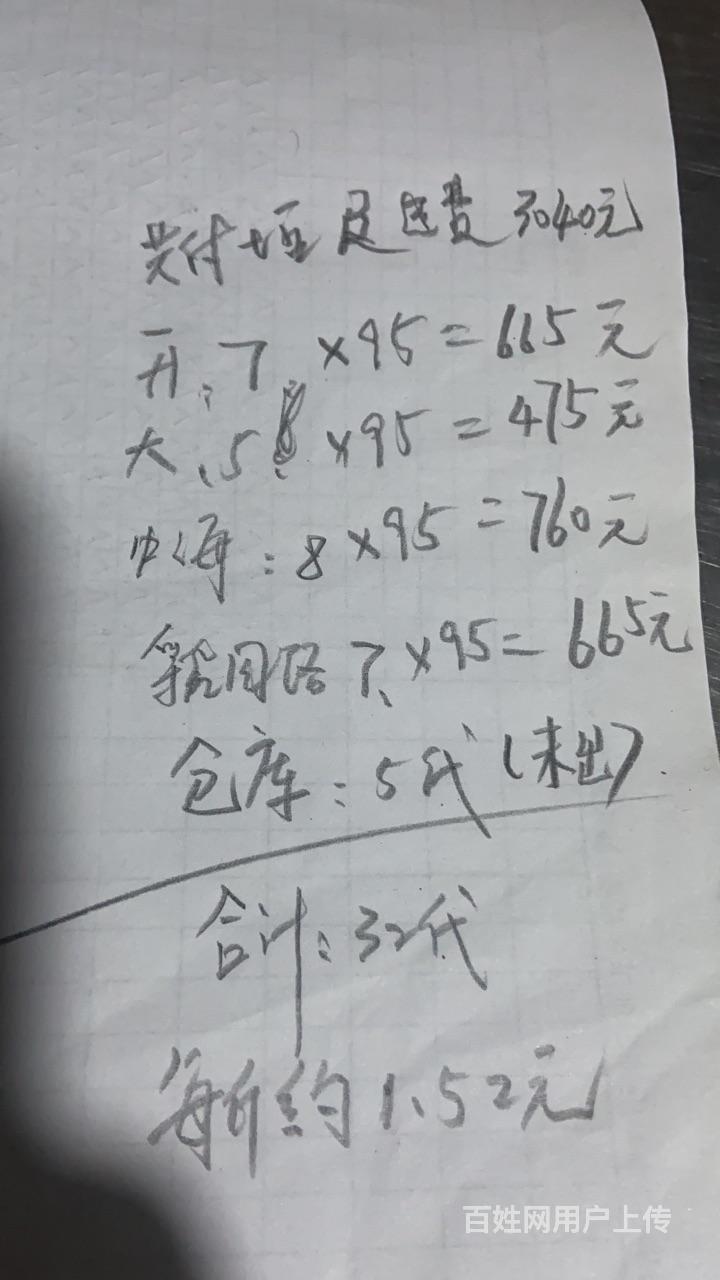 共付垣足运费 3040元
开:7 ×95=665元
大、5 ×95=475元
中海:8×95=760元
学院周路 7、×95=665元
仓库:5代(未出)
合计:32代
每斤约1.52元
百姓网用户上传